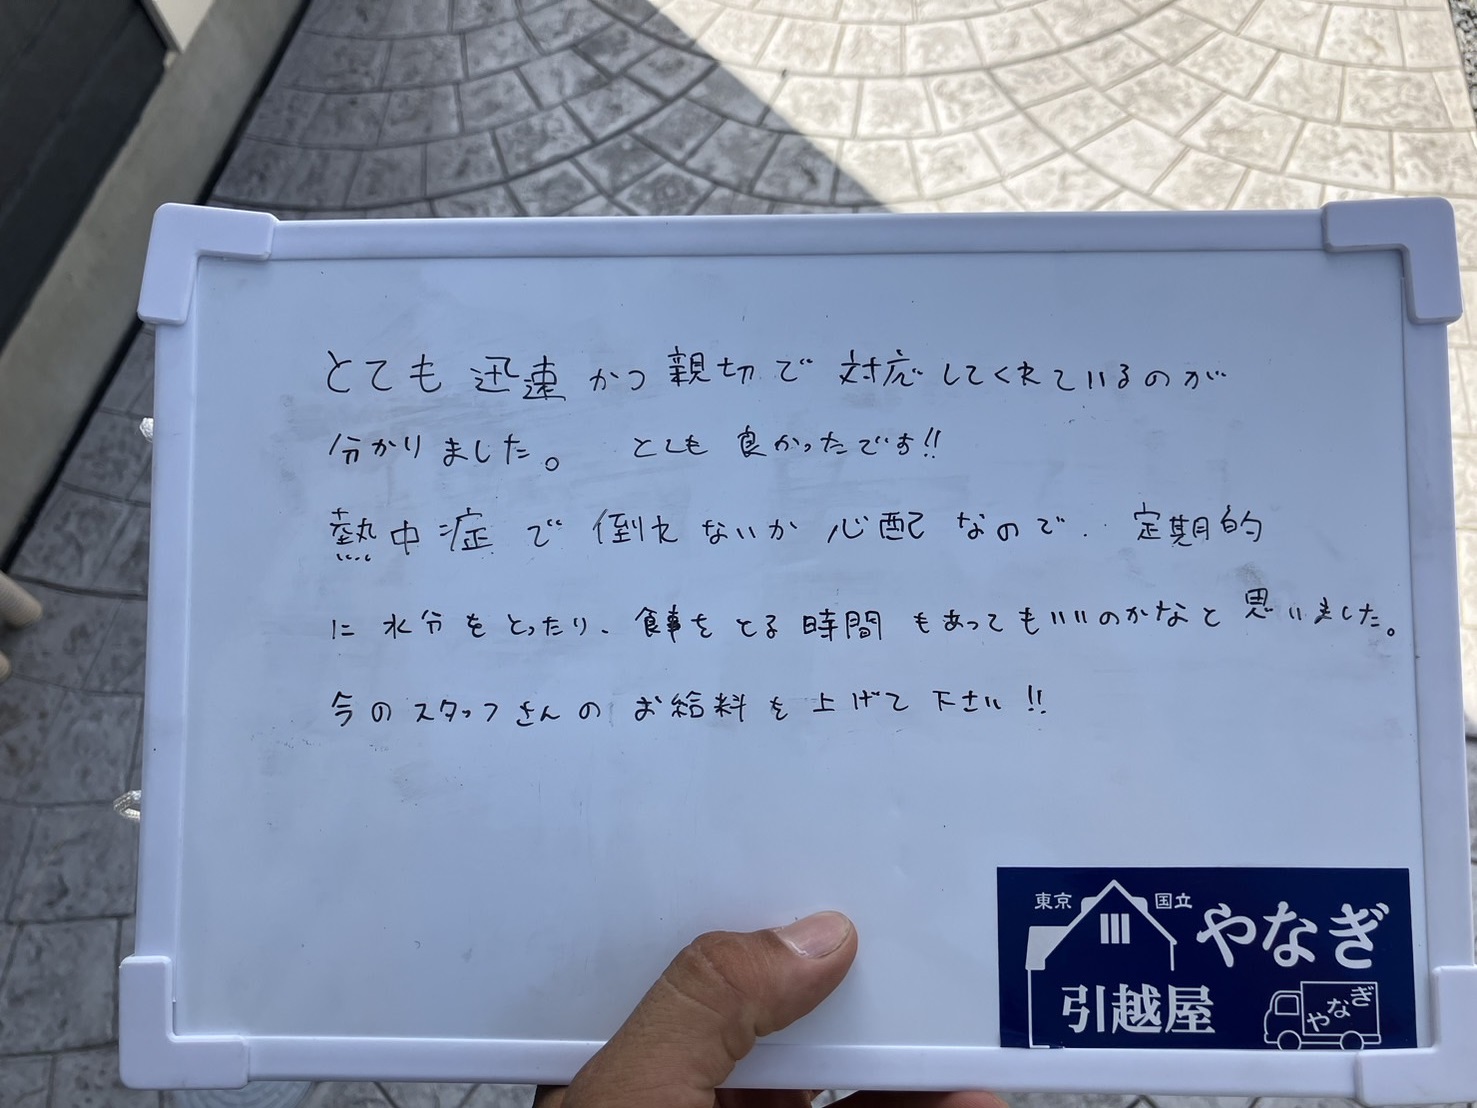 とても 迅速 かつ 親切で 対応してくれているのが
分かりました。 とても 良かったです!!
熱中症で 倒れないか 心配なので、定期的
に 水分をとったり、食事をとる時間もあってもいいのかなと思いました。
今のスタッフさんの お給料を上げて下さい!!
東京 国立 やなぎ
引越屋
やなぎ